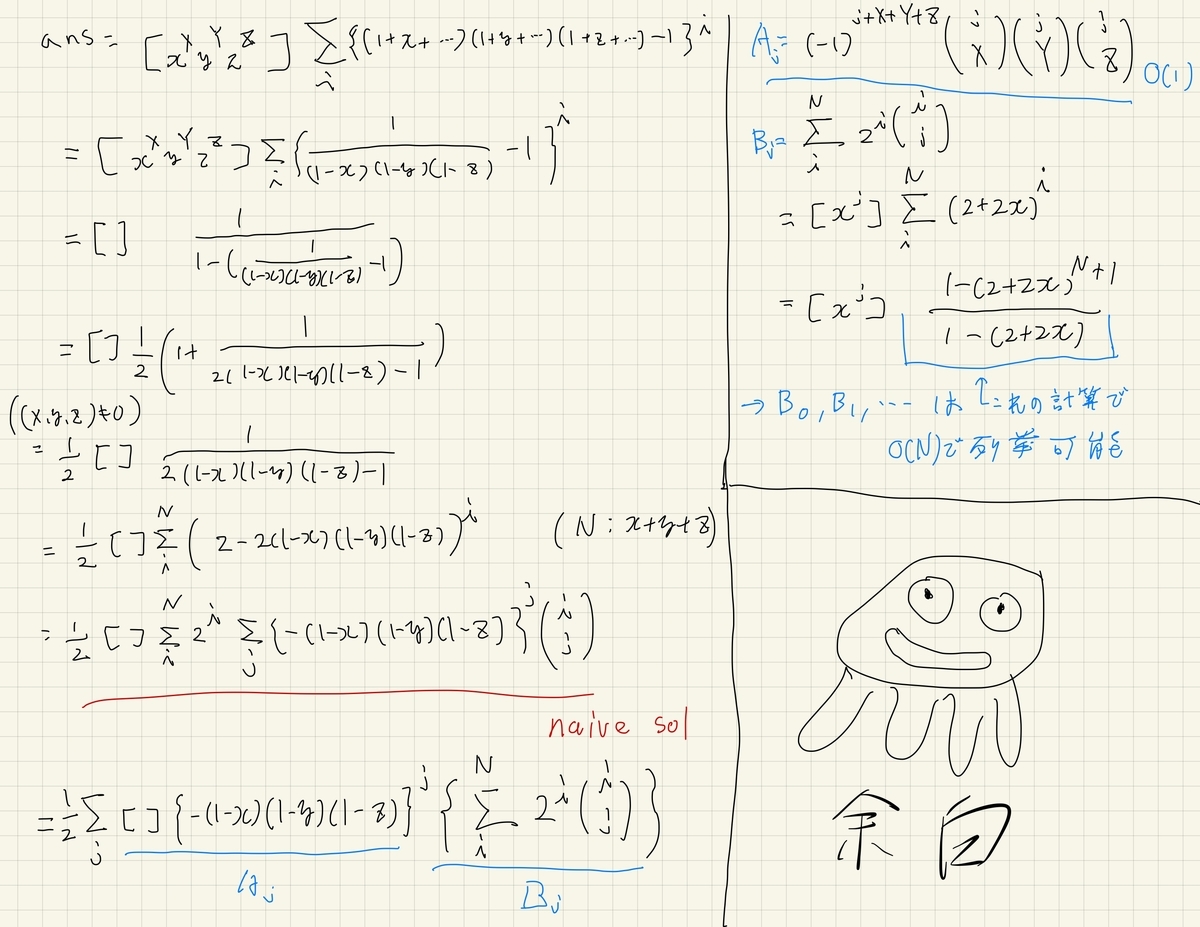 ans = [x^X y^Y z^Z] Σ_i {(1+x+…)(1+y+…)(1+z+…)-1}^i
= [x^X y^Y z^Z] Σ_i {1/((1-x)(1-y)(1-z)) -1}^i
= [] 1/(1-(1/((1-x)(1-y)(1-z)) -1))
= [] 1/2 (1+ 1/(2(1-x)(1-y)(1-z)-1))
((x,y,z)≠0)
= 1/2 [] 1/(2(1-x)(1-y)(1-z)-1)
= 1/2 [] Σ_i^N (2-2(1-x)(1-y)(1-z))^i (N : x+y+z)
= 1/2 [] Σ_i^N 2^i Σ_j {-(1-x)(1-y)(1-z)}^j (i j)
naive sol
= 1/2 Σ_j [] {-(1-x)(1-y)(1-z)}^j {Σ_i^N 2^i (i j)}
A_j B_j
A_j = (-1)^{j+X+Y+Z} (j X)(j Y)(j Z) O(1)
B_j = Σ_i^N 2^i (i j)
= [x^j] Σ_i^N (2+2x)^i
= [x^j] (1-(2+2x)^{N+1})/(1-(2+2x))
→ B_0, B_1, … は ↑これの計算で
O(N)で列挙可能
余白